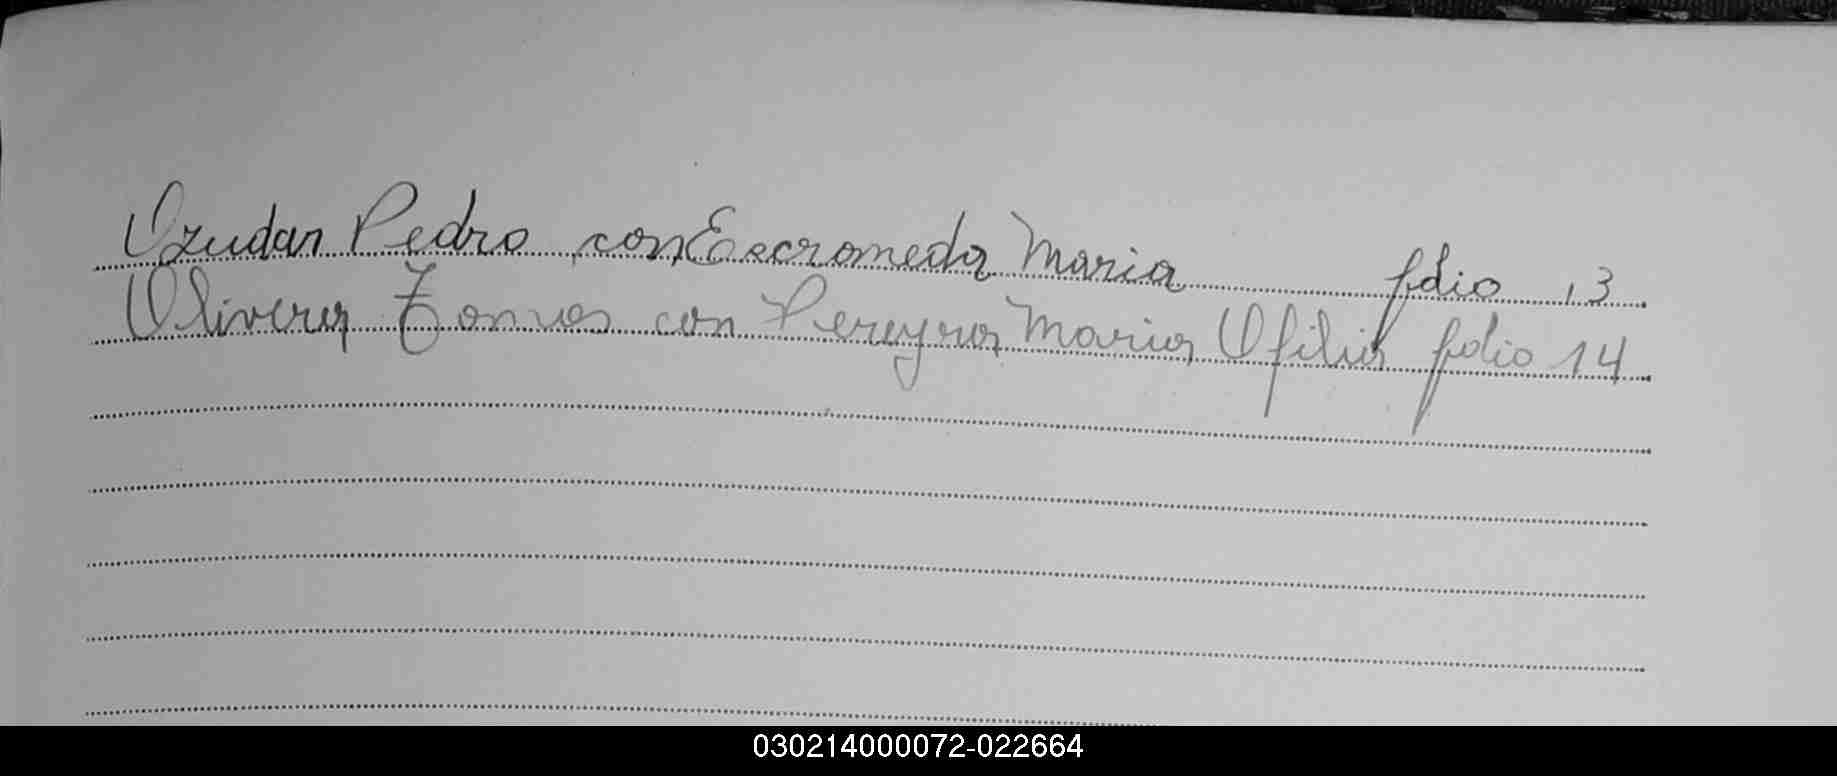 Ozudan Pedro con Escromeda Maria folio 13
Olivera Tomas con Pereyra Maria Ofilia folio 14
030214000072-022664